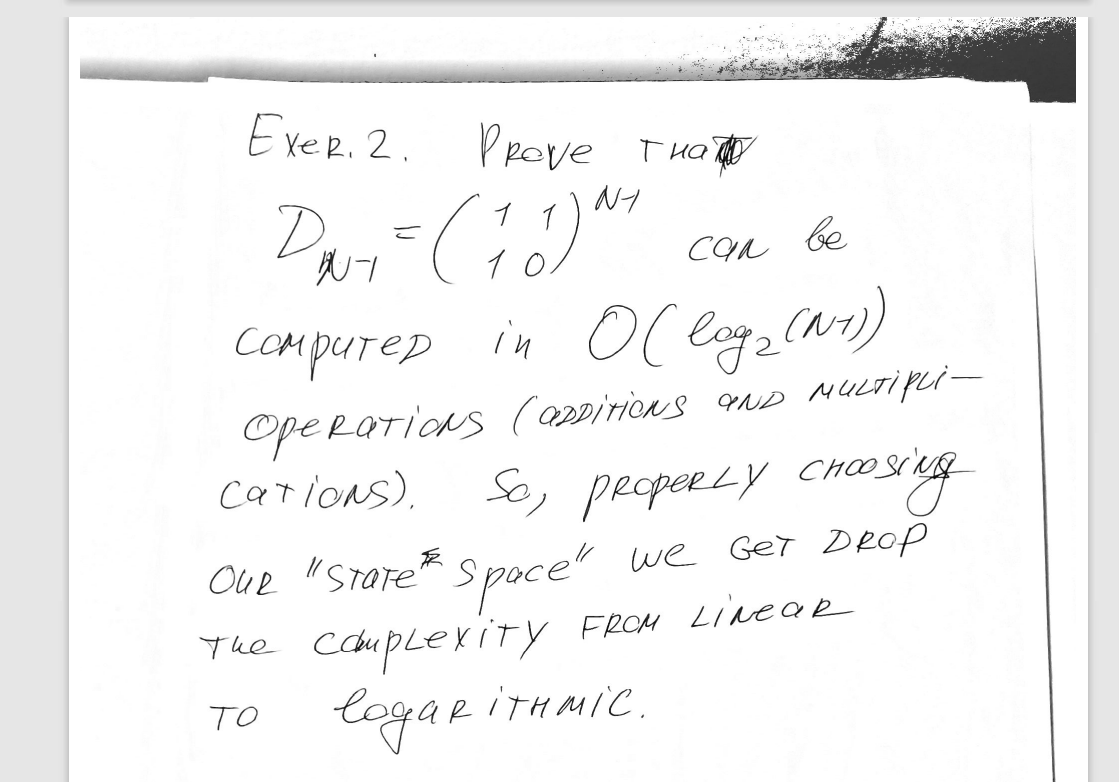 Exer. 2. Prove that
D_{N-1} = \begin{pmatrix} 1 & 1 \\ 1 & 0 \end{pmatrix}^{N-1} can be
computed in O(log_2(N-1))
operations (additions and multipli-
cations). So, properly choosing
our "state space" we get drop
the complexity from linear
to logarithmic.